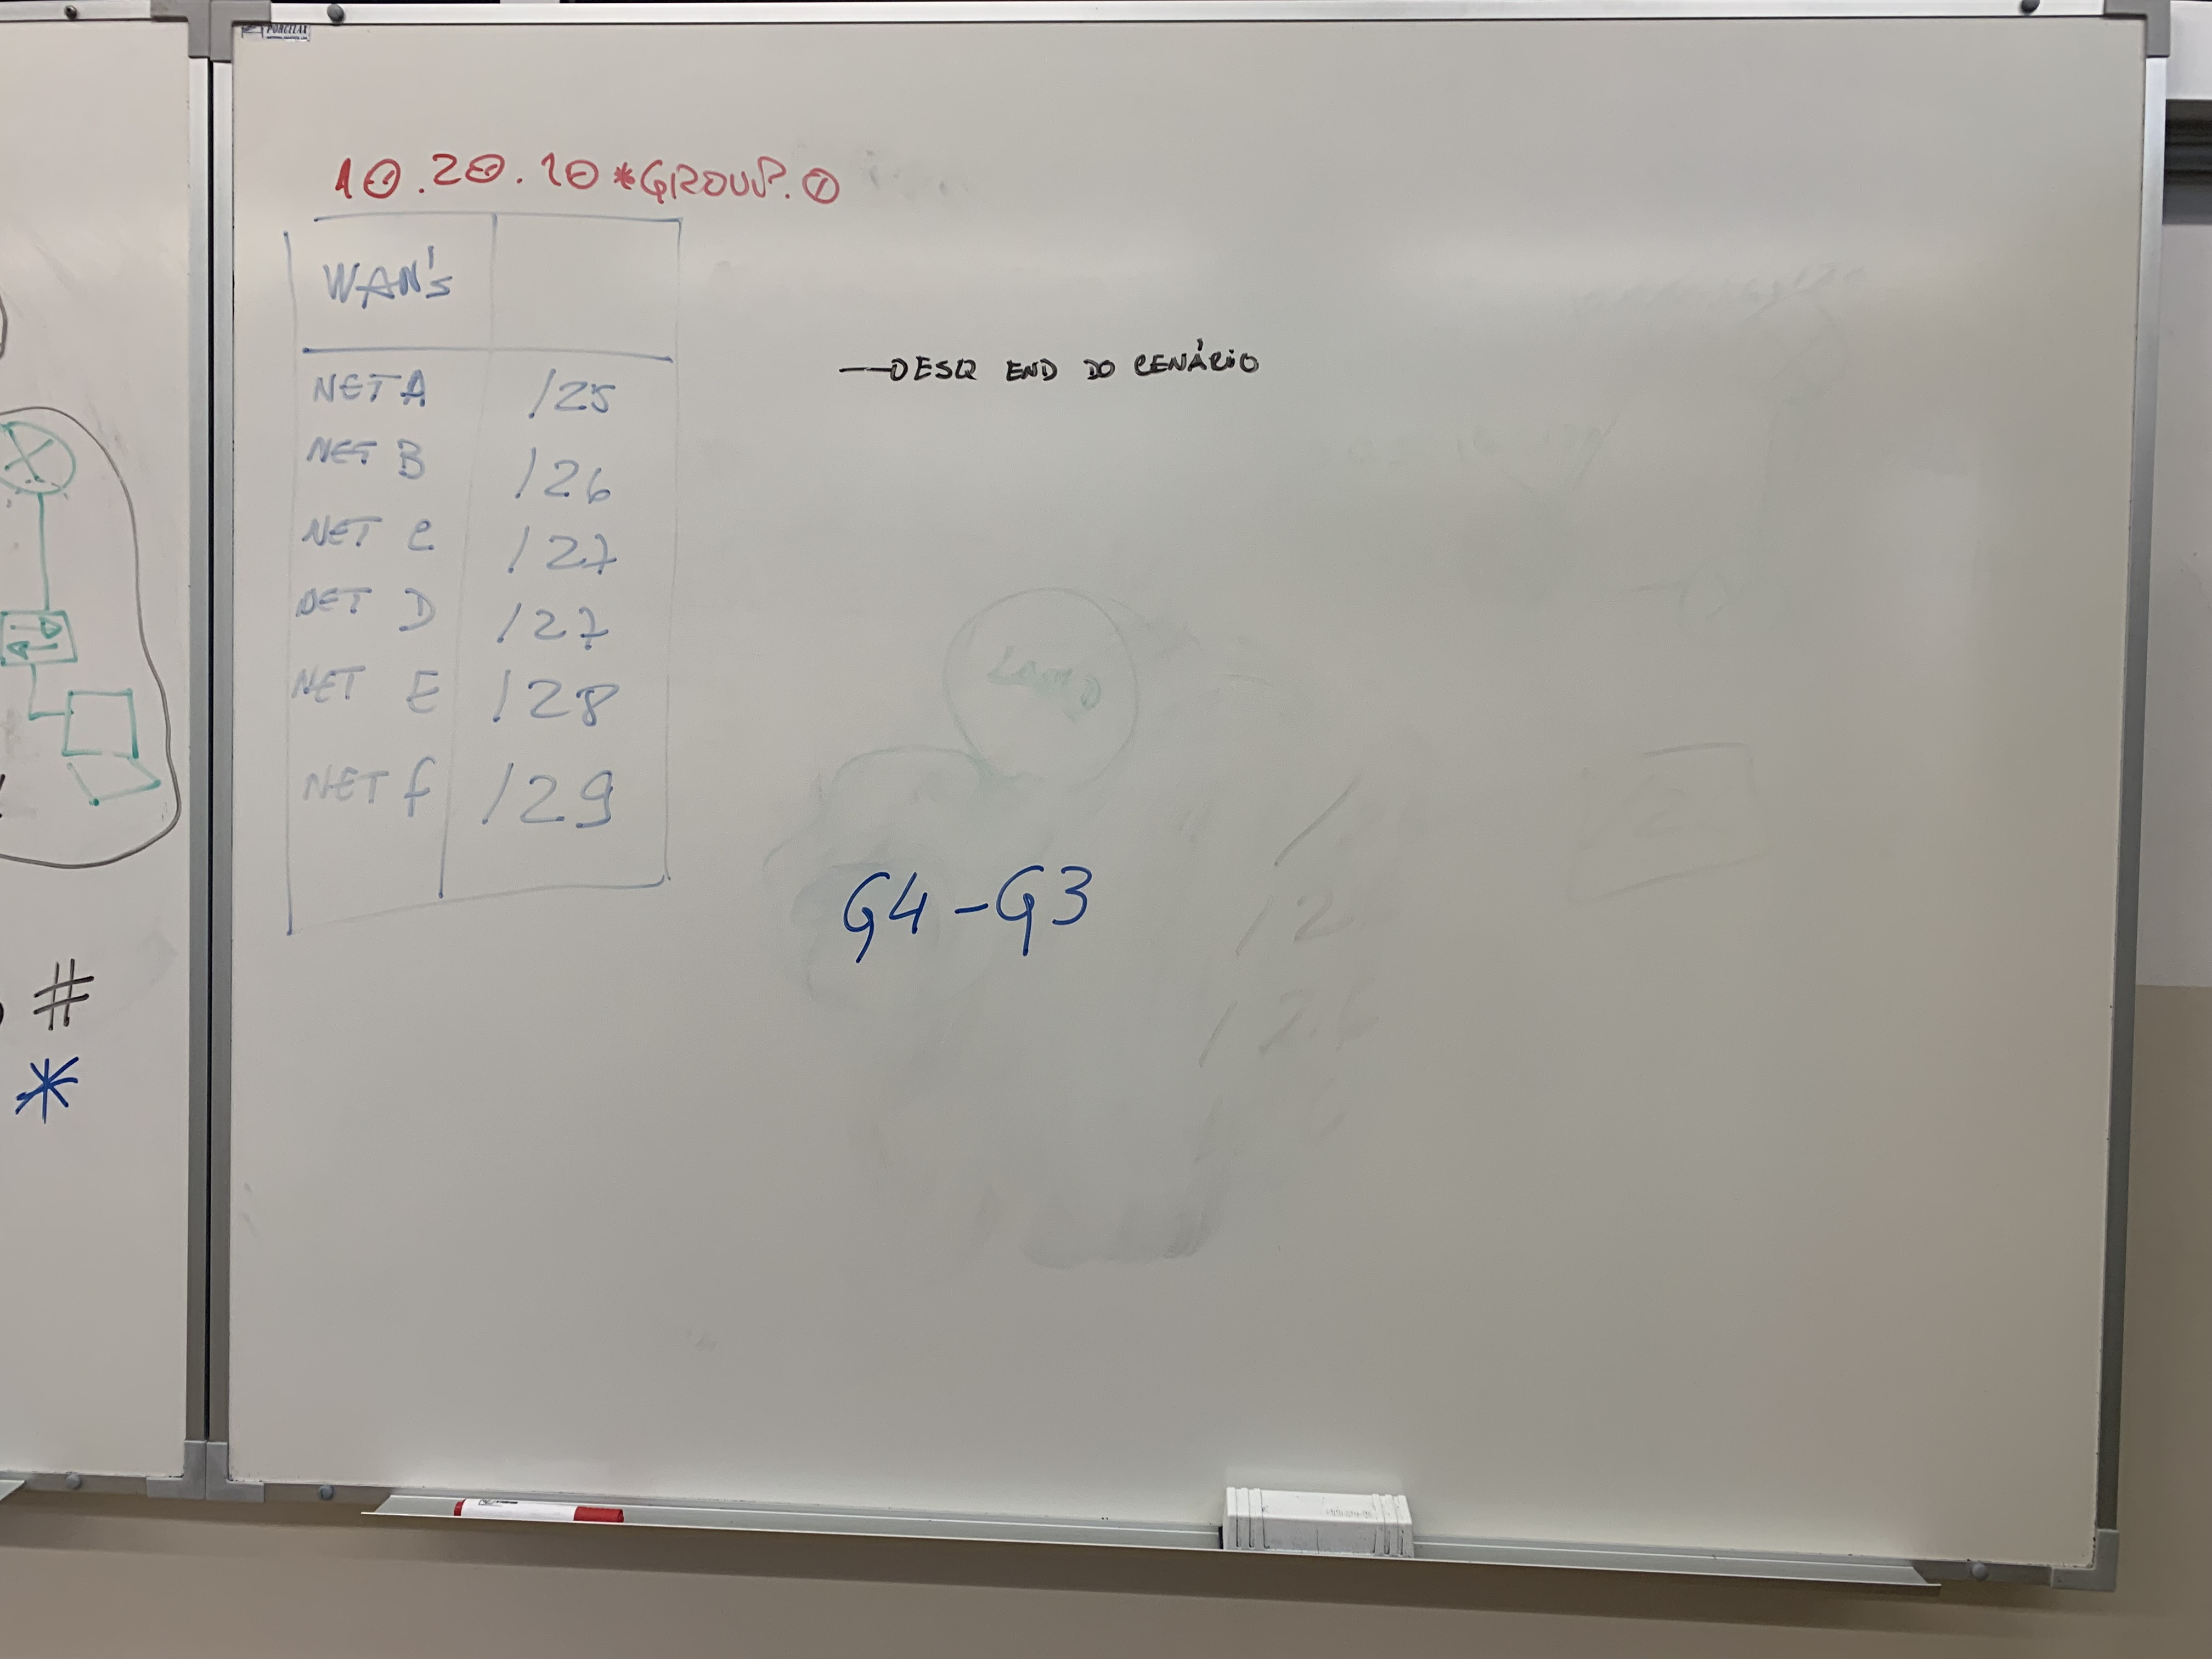 PORCELAX
10.20.10*GROUP.0
WAN's
NET A /25
NET B /26
NET C /27
NET D /27
NET E /28
NET f /29
—DESQ END DO CENÁRIO
G4-G3
#
*